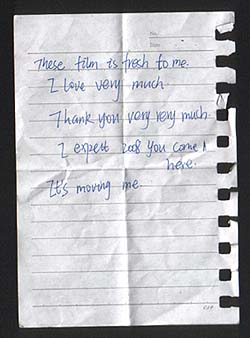 No.
Date
These film is fresh to me.
I love very much.
Thank you very very much.
I expert 2008 you come
here.
It's moving me.